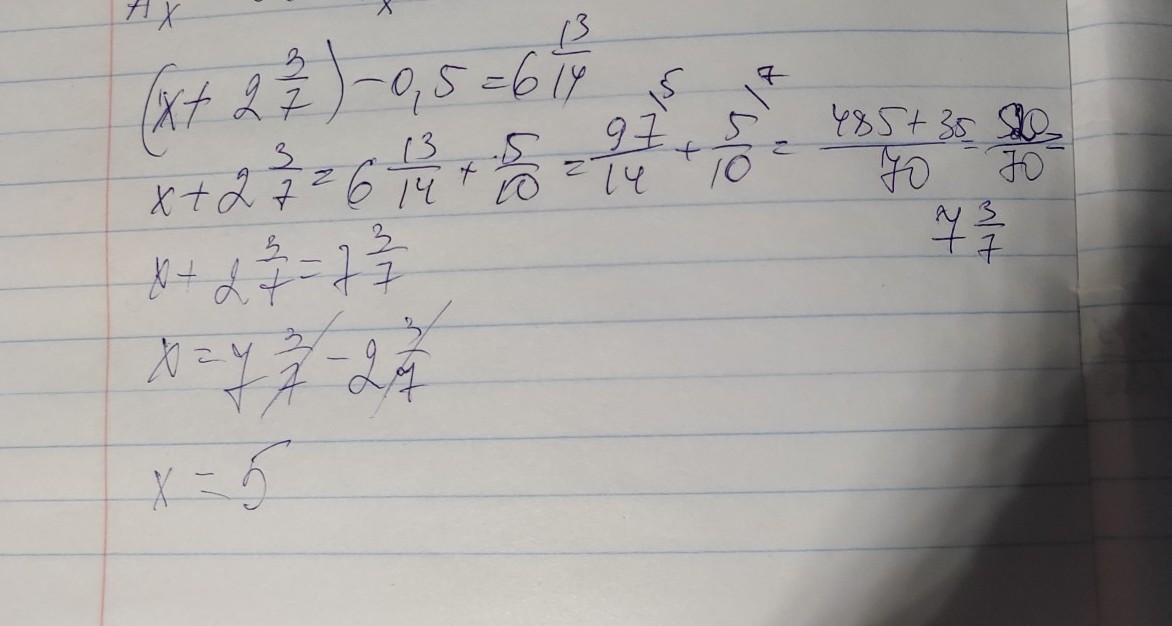 (x + 2 3/7) - 0,5 = 6 13/14
x + 2 3/7 = 6 13/14 + 5/10 = 97/14 \5 + 5/10 \7 = 485 + 35/70 = 520/70 =
7 3/7
x + 2 3/7 = 7 3/7
x = 7 3/7 - 2 3/7
x = 5